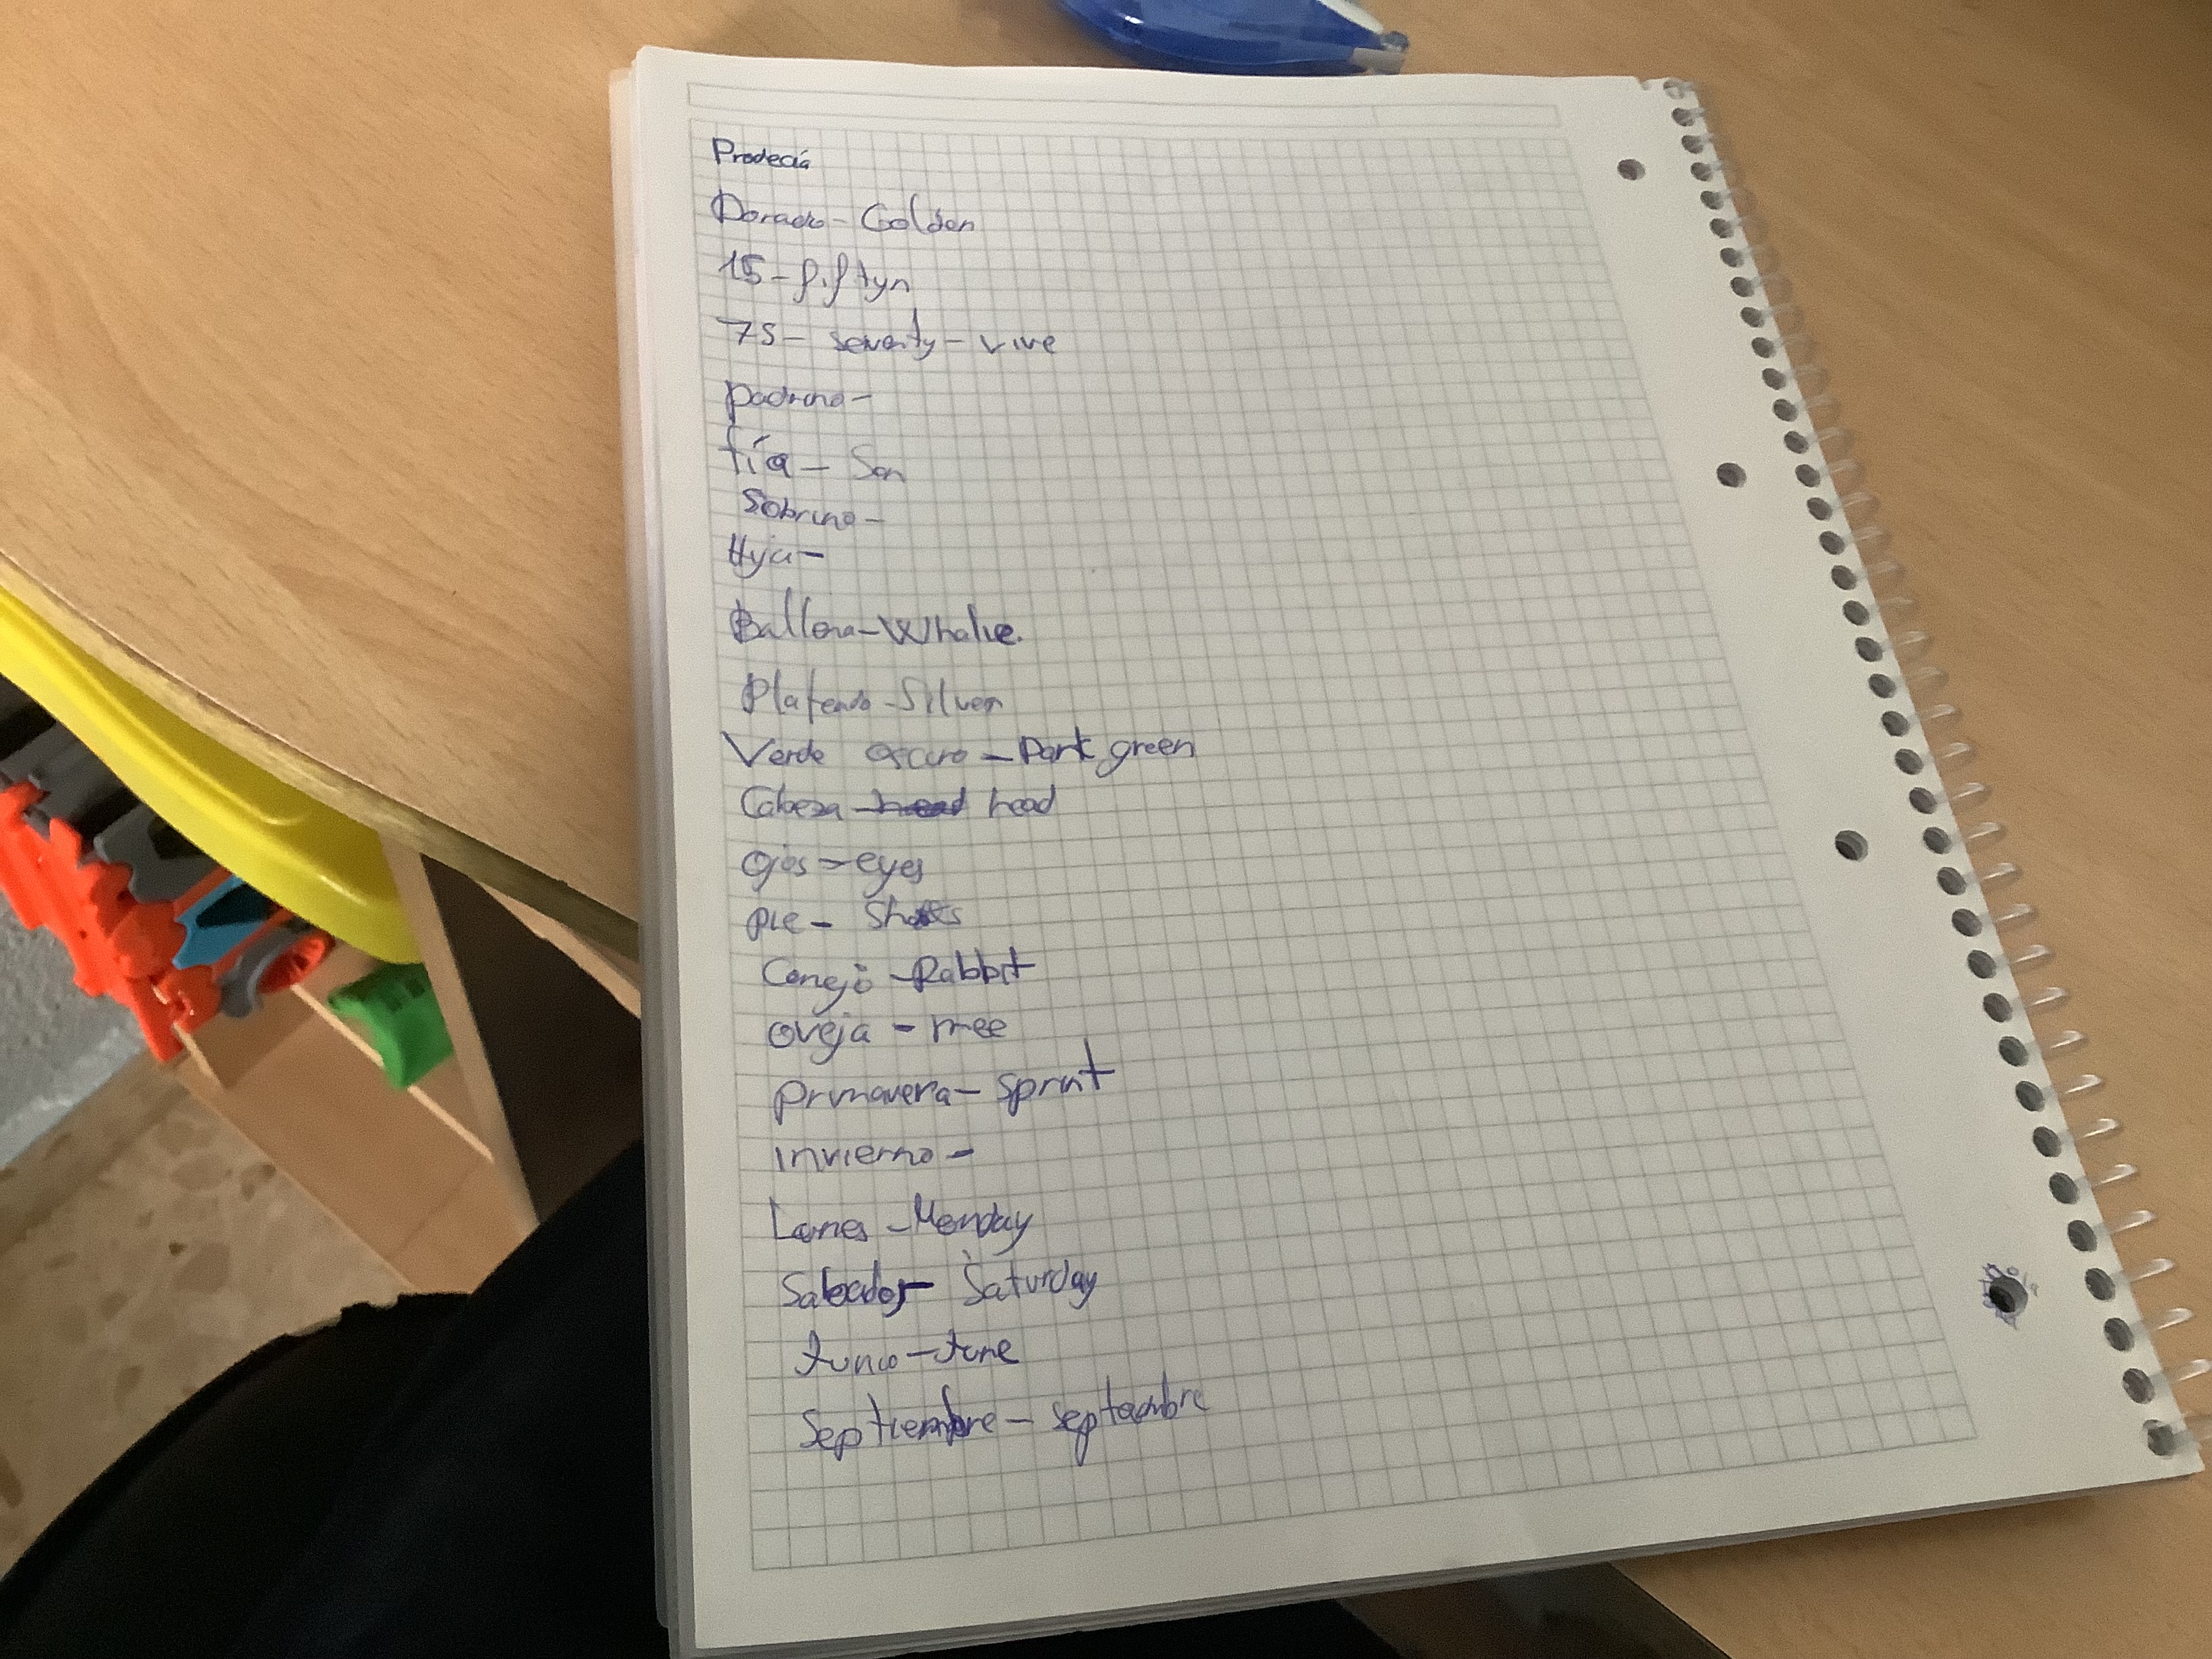 Prodecía
Dorado - Golden
15 - fiftyn
75 - seventy - vive
padrino -
tía - Son
Sobrino -
Hija -
Ballena - Whalie.
Plateado - Silver
Verde oscuro - Dark green
Cabeza - head head
Ojos - eyes
pie -
Conejo - Rabbit
oveja - mee
primavera - sprint
invierno -
Lunes - Monday
Sabado - Saturday
Junio - June
Septiembre - septembre